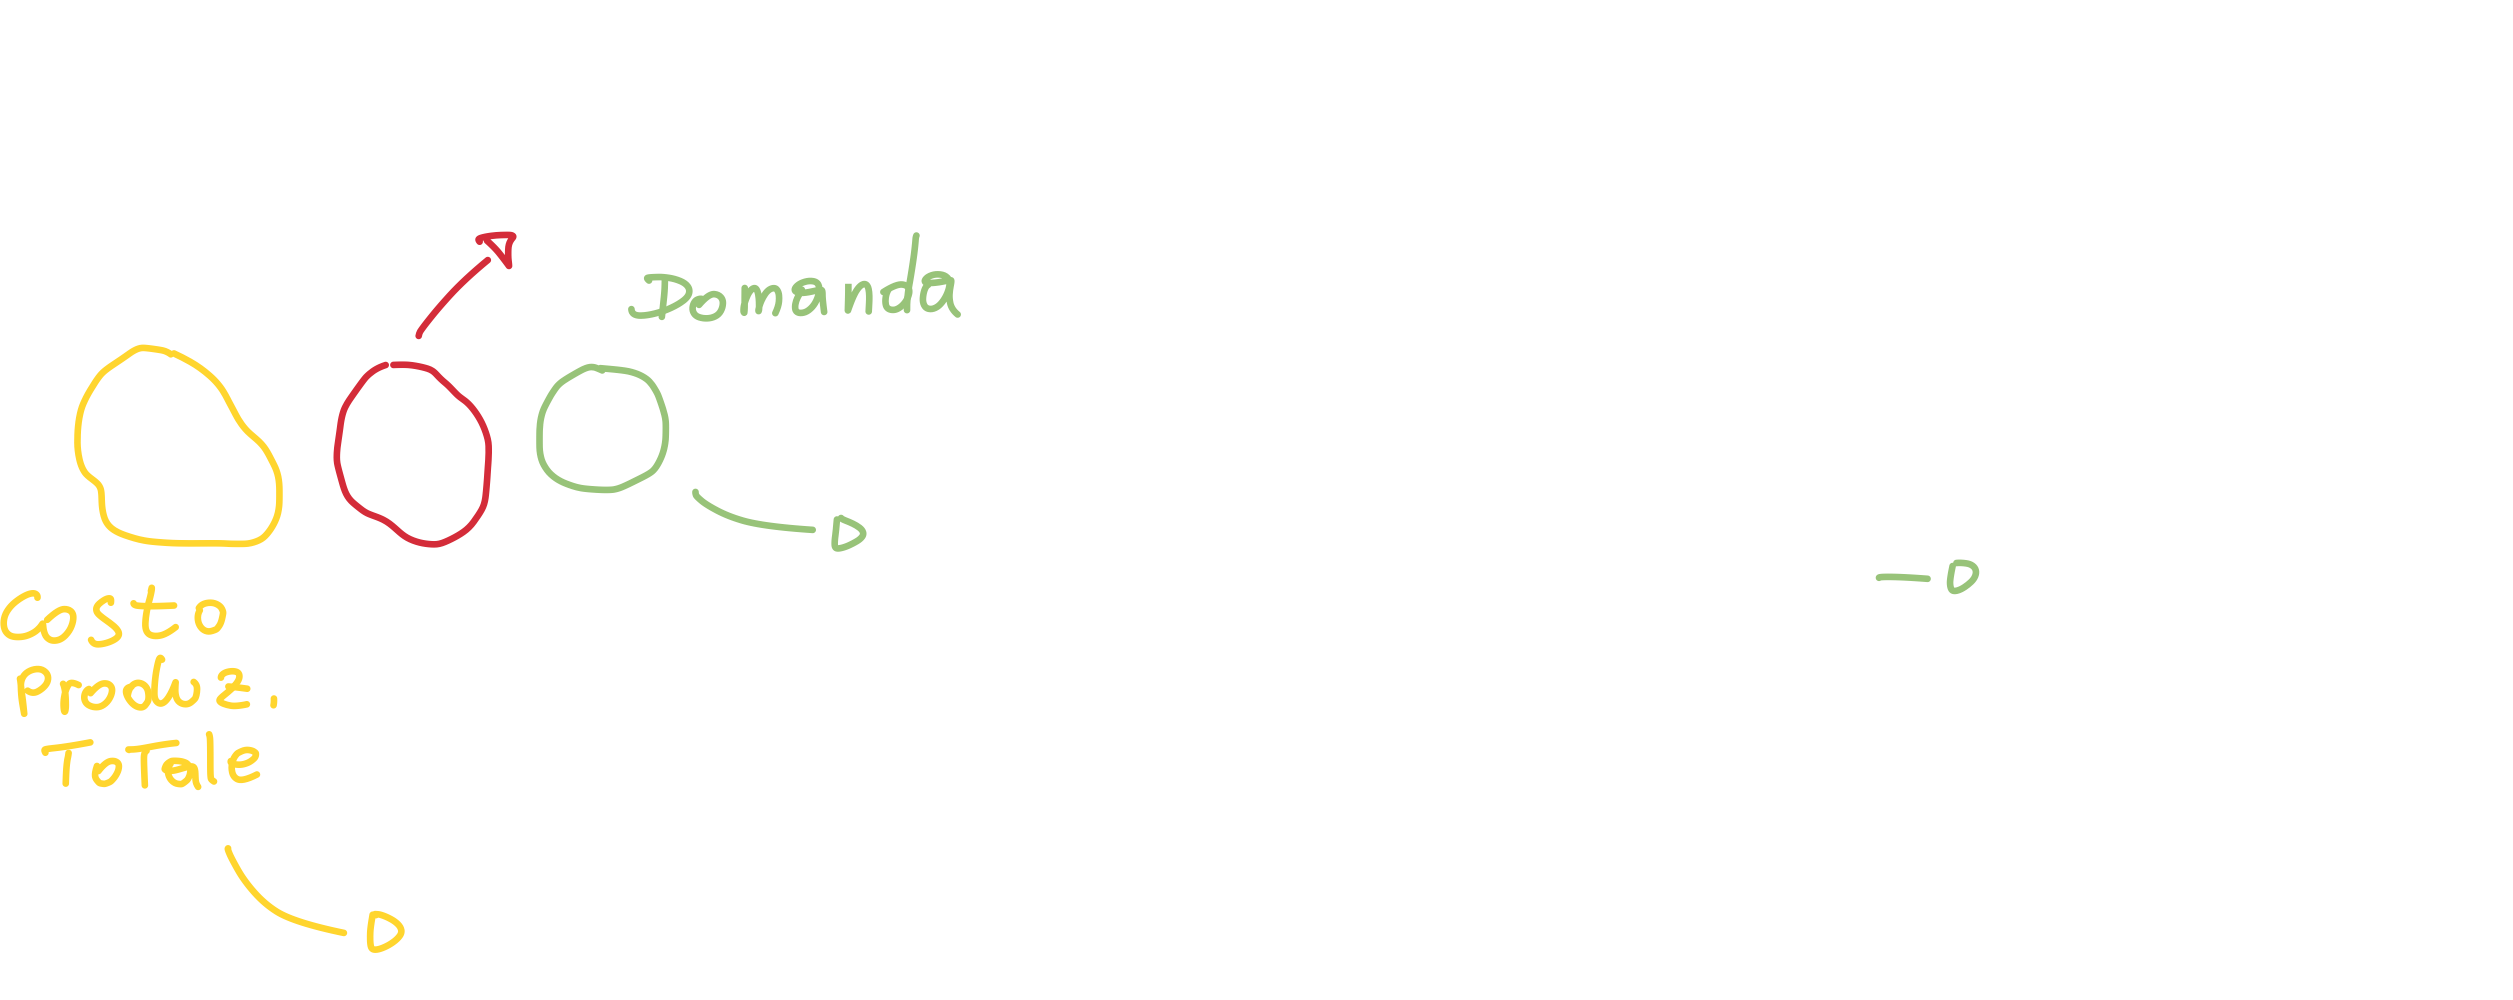 Domanda
Costo
Produz.
Totale